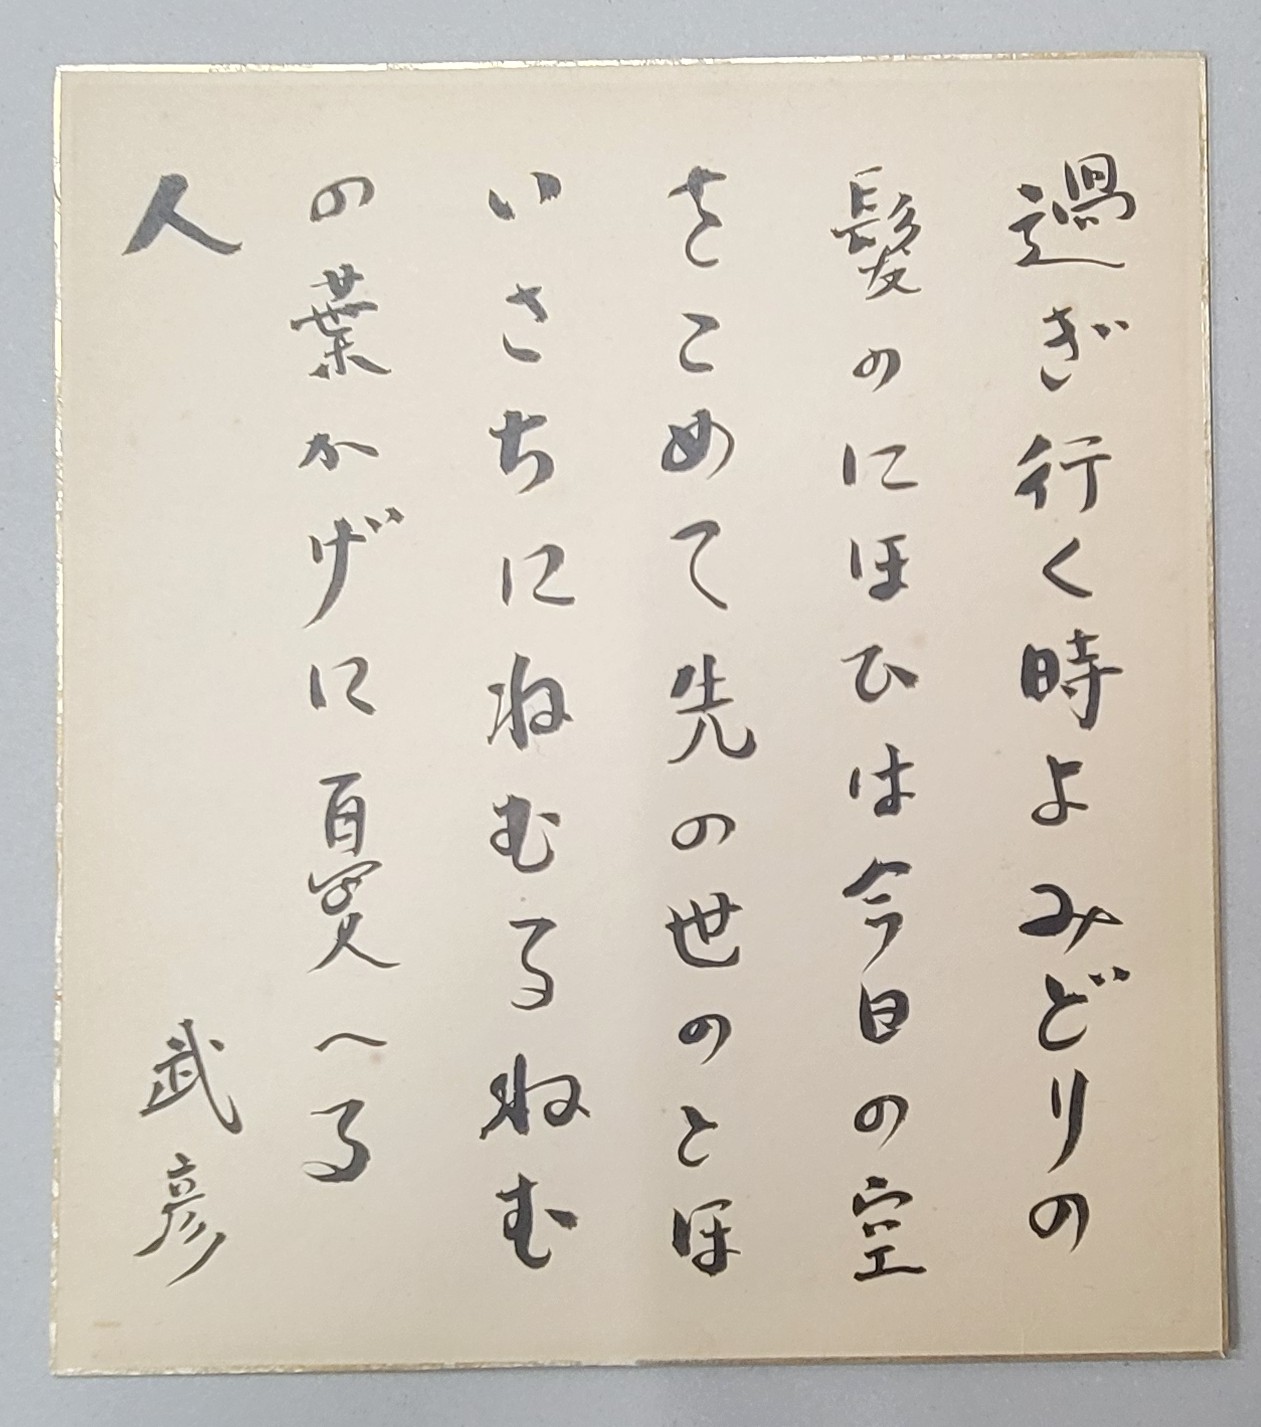 過ぎ行く時よみどりの
髪のにほひは今日の空
をこめて先の世のとほ
いさちにねむるねむ
の葉かげに百夜へる
人
武彦